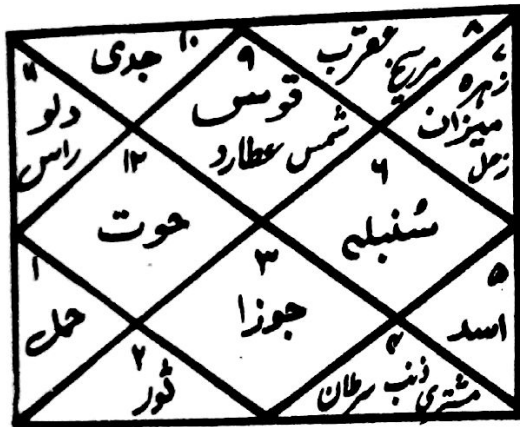 ۱۰
جدی
۹
قوس
شمس عطارد
۸
عقرب
مریخ
۷
زہرہ
میزان
زحل
۱۱
دلو
راس
۱۲
حوت
۶
سُنبلہ
۱
حمل
۳
جوزا
۵
اسد
۲
ثور
۴
مشتری ذنب سرطان